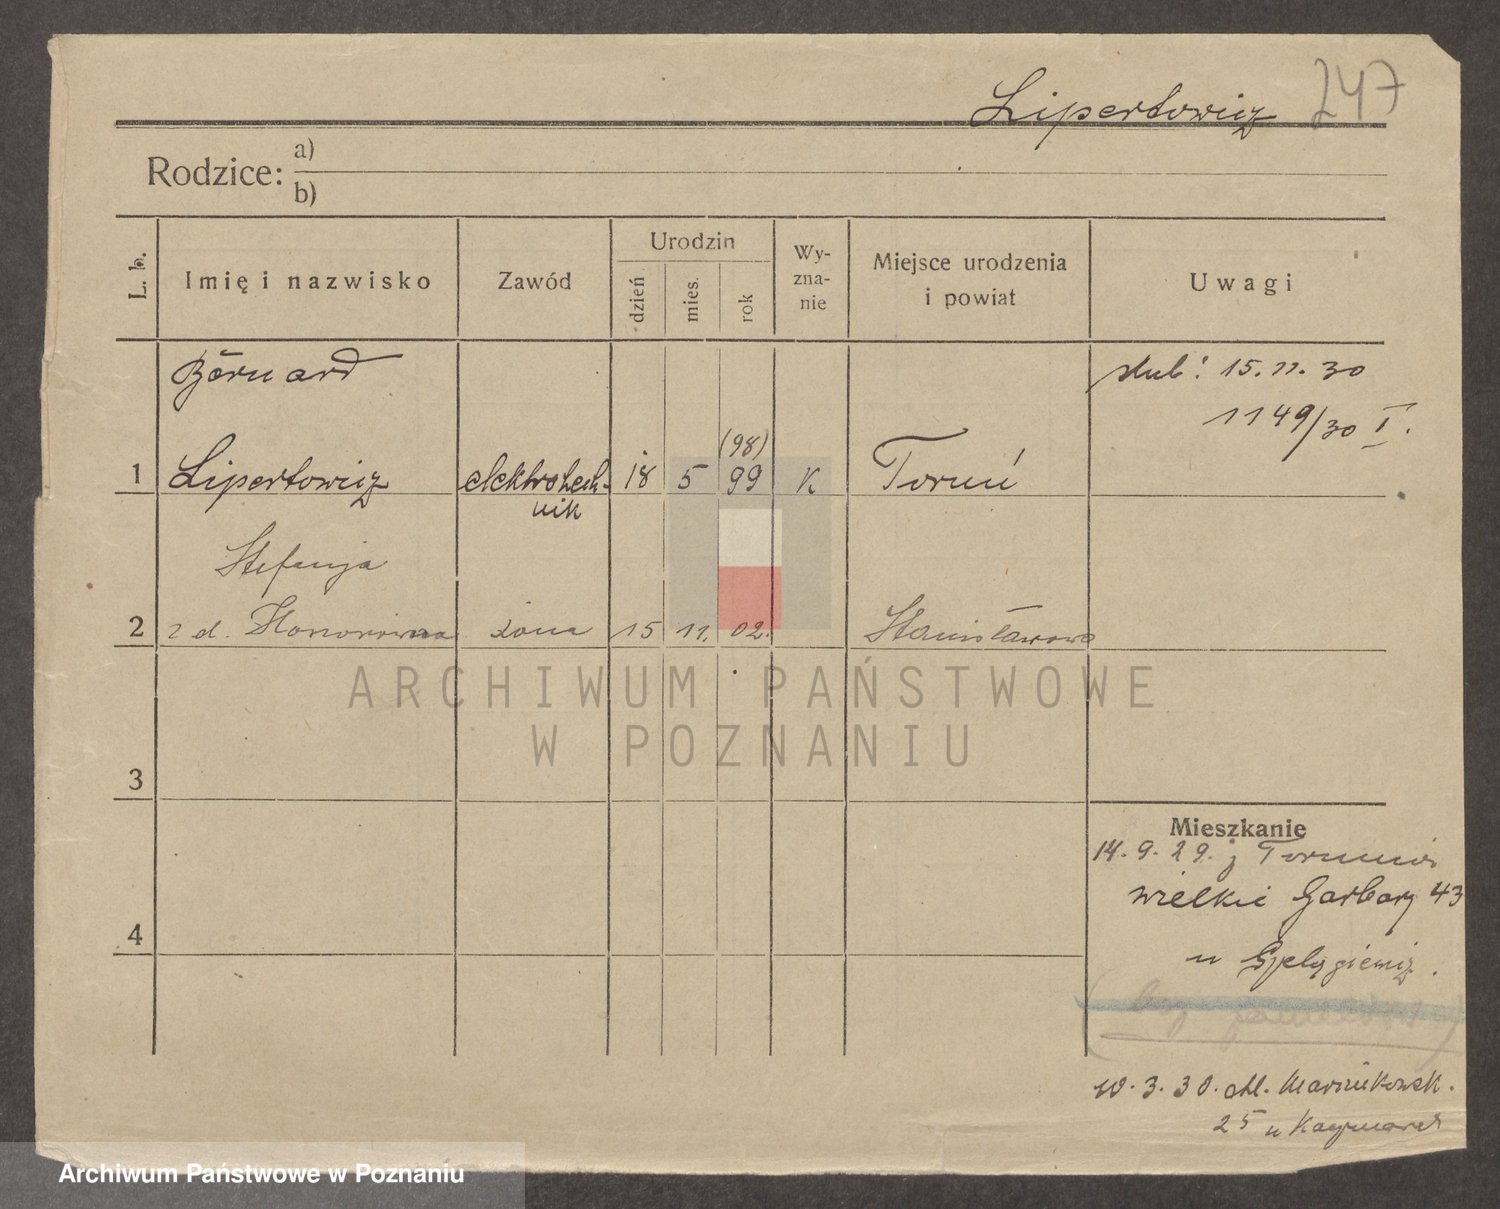 Lipertowicz 247
Rodzice: a)
b)
L. b.
Imię i nazwisko
Zawód
Urodzin
dzień
mies.
rok
Wy-
zna-
nie
Miejsce urodzenia
i powiat
Uwagi
Bernard
ślub: 15.11.30
1149/30 I.
(98)
1 Lipertowicz elektrotech- 18 5 99 K Toruń
nik
Stefanja
2 z d. żona 15 11. 02. Stanisławowo
ARCHIWUM PAŃSTWOWE
W POZNANIU
3
Mieszkanie
14.9.29. z Torunia
wielkie Garbary 43
4
u
10.3.30.
25 u
Archiwum Państwowe w Poznaniu